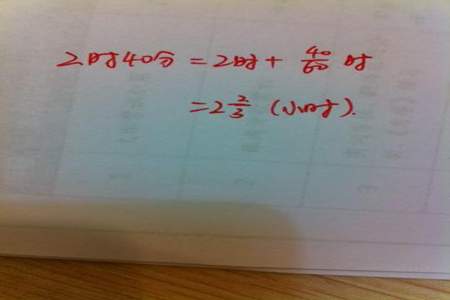 2时40分 = 2时 + 40/60 时
= 2 2/3 (小时).